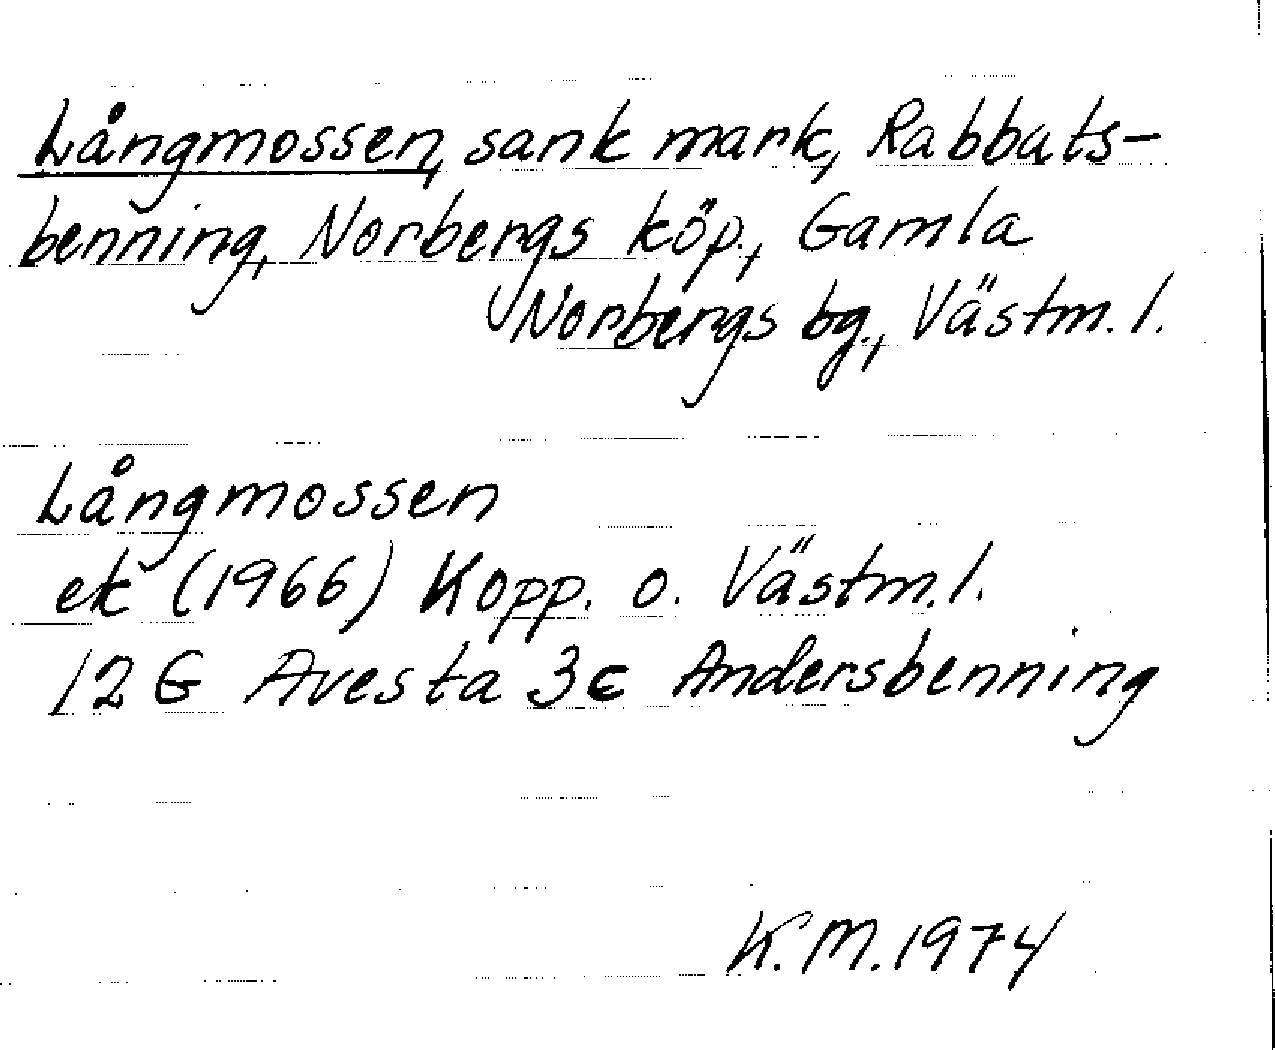 Långmossen, sank mark, Rabbats-
benning, Norbergs köp., Gamla
Norbergs bg., Västm. l.
Långmossen
ek (1966) Kopp. o. Västm. l.
12 G Avesta 3c Andersbenning
K. M. 1974